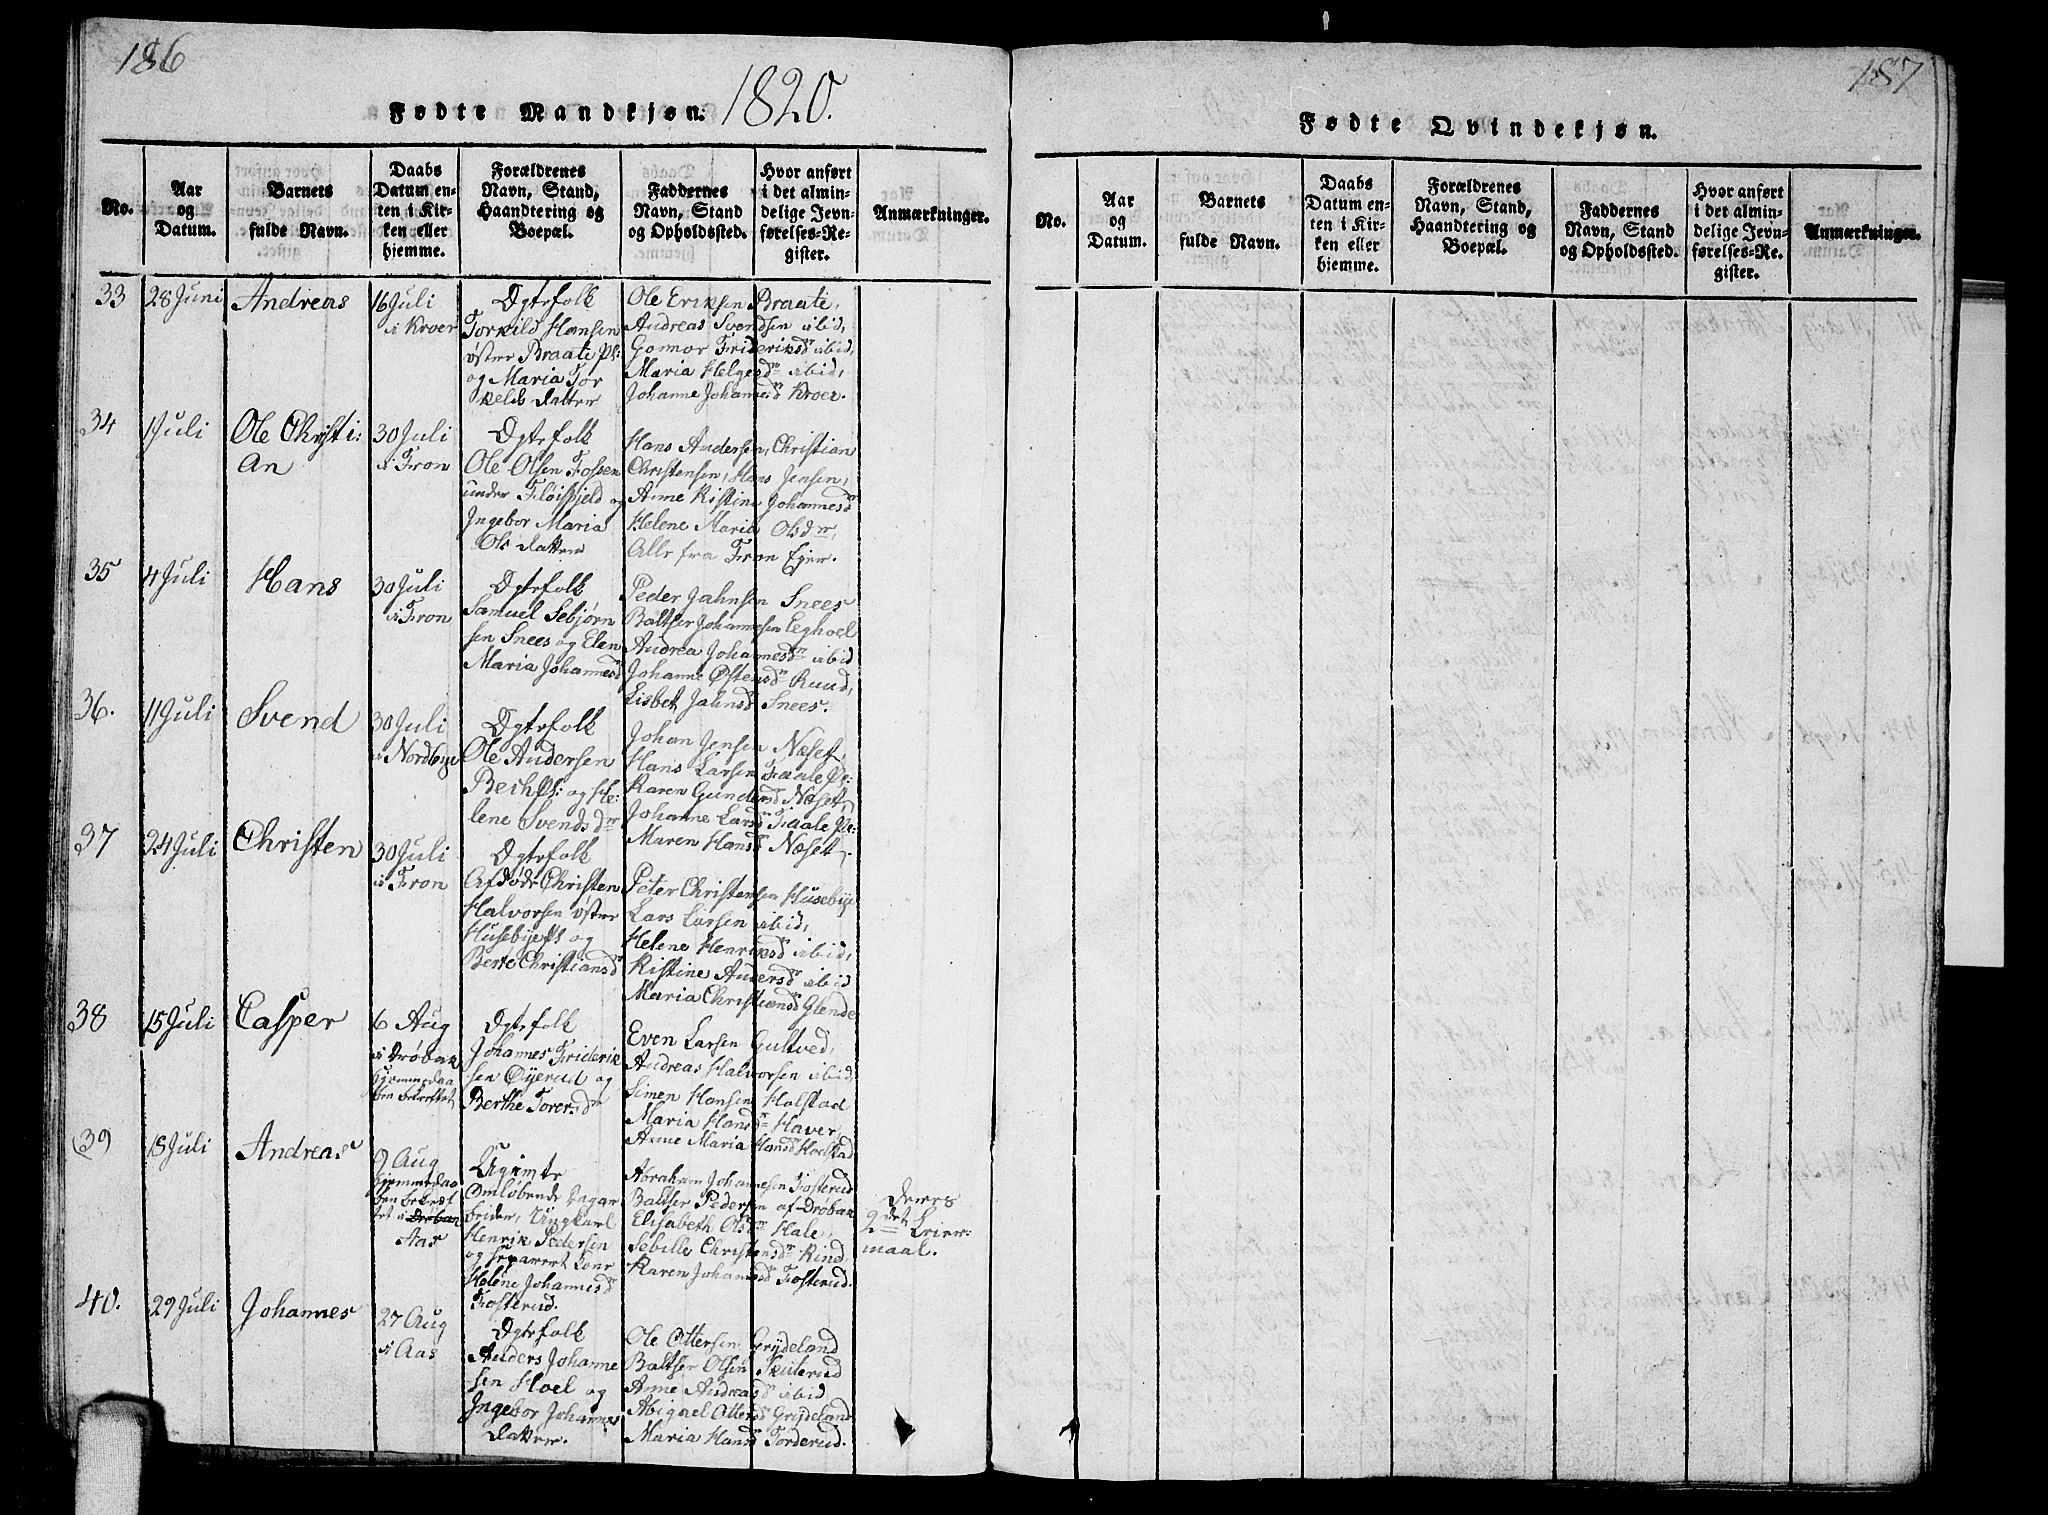 186
1820.
Fødte Mandkjøn.
No.
Aar
og
Datum.
Barnets
fulde Navn.
Daabs
Datum en-
ten i Kir-
ken eller
hjemme.
Forældrenes
Navn, Stand,
Haandtering og
Boepæl.
Faddernes
Navn, Stand
og Opholdssted.
Hvor anført
i det almin-
delige Jevn-
førelses-Re-
gister.
Anmærkninger.
33
28 Juni
Andreas
16 Juli
i Kroer
Ægtefolk
Torkild Hansen
østre Braate Pl:
og Maria Tor
kelds datter
Ole Eriksen Braate,
Andreas Svendsen ibid,
Gonnor Frideriksd ibid,
Maria Helgesdr ibid,
Johanne Johannesdr Kroer.
34
1 Juli
Ole Christi:
an
30 Juli
i Fron
Ægtefolk
Ole Olsen Fossen
under Fløispjeld og
Ingebor Maria
Ols datter
Hans Andersen, Christian
Christensen, Hans Jensen,
Anne Kistine Johannesdr
Helene Maria Olsdr,
Alle fra Fron Ejer.
35
4 Juli
Hans
30 Juli
i Fron
Ægtefolk
Samuel Sebjørn
sen Snees og Elen
Maria Johannesd
Peder Jahnsen Snees
Baltser Johannesen Eeghoel
Andrea Johannesdr ibid
Johanne Østensdr Ruud,
Lisbet Jahnsd Snees.
36.
11 Juli
Svend
30 Juli
i Nordbye
Ægtefolk
Ole Andersen
Bech Ps: og He:
lene Svendsdr
Johan Jensen Næset,
Hans Larsen Faale Pl:
Karen Gundersd Næset,
Johanne Larsdr Faale Pl:
Maren Hansdr Næset.
37
24 Juli
Christen
30 Juli
i Fron
Ægtefolk
Afdøde Christen
Halvorsen østre
Husebye Ps og
Berte Christiansd
Peter Christensen Husebye
Lars Larsen ibid,
Helene Henriksd ibid,
Kistine Andersdr ibid
Maria Christiansd Glende
38
15 Juli
Casper
6 Aug
i Drøbak
hjemmedaa
ben bekræftet
Ægtefolk
Johannes Friderik
sen Øyerud og
Berthe Toresdr
Even Larsen Gultved,
Andreas Halvorsen ibid,
Simen Hansen Holstad
Maria Hansdr Haver,
Anne Maria Hansdr Holstad
39
18 Juli
Andreas
9 Aug
hjemmedaa
ben bekræf
tet i Drøbak
Aas
Ugimte
Omløbende Dagar
beider, Ungkarl
Henrik Pedersen
og separeret Kone
Helene Johannesdr
Fosterud.
Abraham Johannesen Fosterud
Baltser Pedersen af Drøbak
Elisabeth Olsdr Hale,
Sebille Christensdr Rind
Karen Johannesd Fosterud.
Deres
2det Leier:
maal.
40.
29 Juli
Johannes
27 Aug
i Aas
Ægtefolk
Anders Johanne
sen Hoel og
Ingebor Johannes
datter.
Ole Ottersen Grydeland
Baltser Olsen Skuterud
Anne Andreasd ibid
Abigael Ottersd Grydeland
Maria Hansdr Torderud.
187
Fødte Qvindekjøn.
No.
Aar
og
Datum.
Barnets
fulde Navn.
Daabs
Datum en-
ten i Kir-
ken eller
hjemme.
Forældrenes
Navn, Stand,
Haandtering og
Boepæl.
Faddernes
Navn, Stand
og Opholdssted.
Hvor anført
i det almin-
delige Jevn-
førelses-Re-
gister.
Anmærkninger.